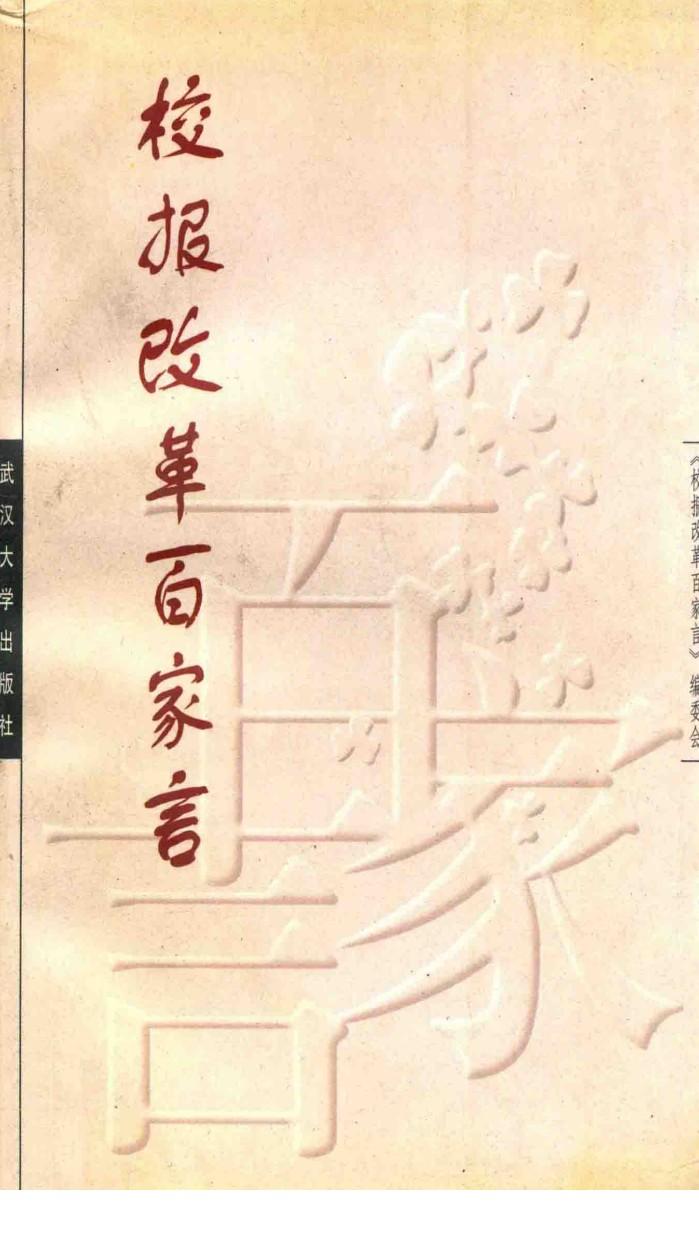 校报改革百家言
百家言
《校报改革百家言》编委会
武汉大学出版社